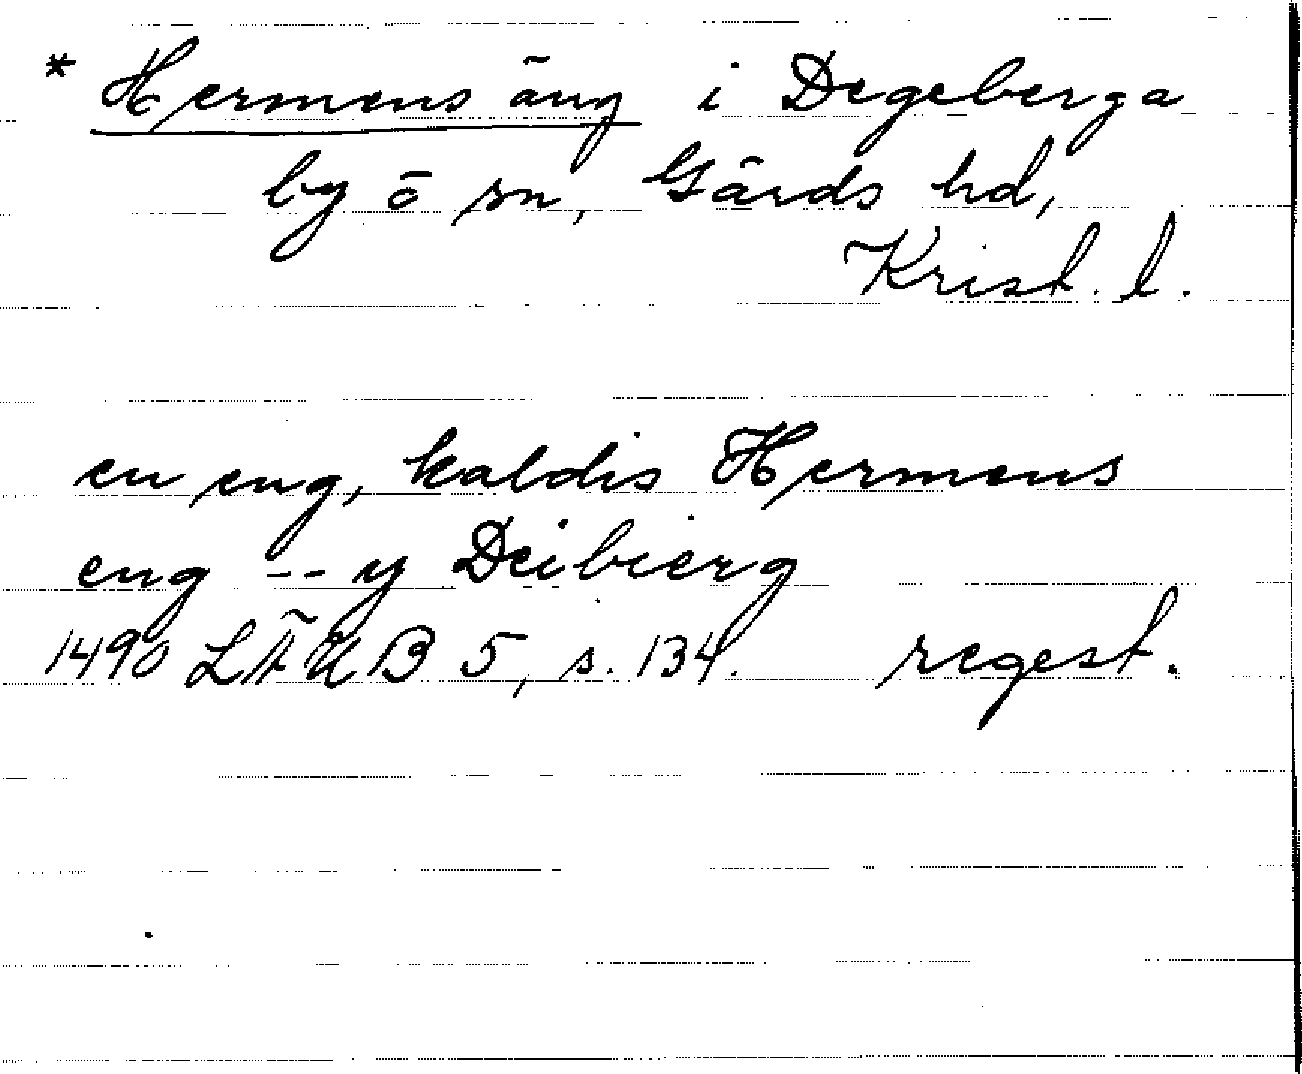 * Hermens äng i Degeberga
by o sn, Gärds hd,
Krist. l.
en eng, kaldis Hermens
eng -- y Deibierg
1490 LÄUB 5, s. 134. regest.